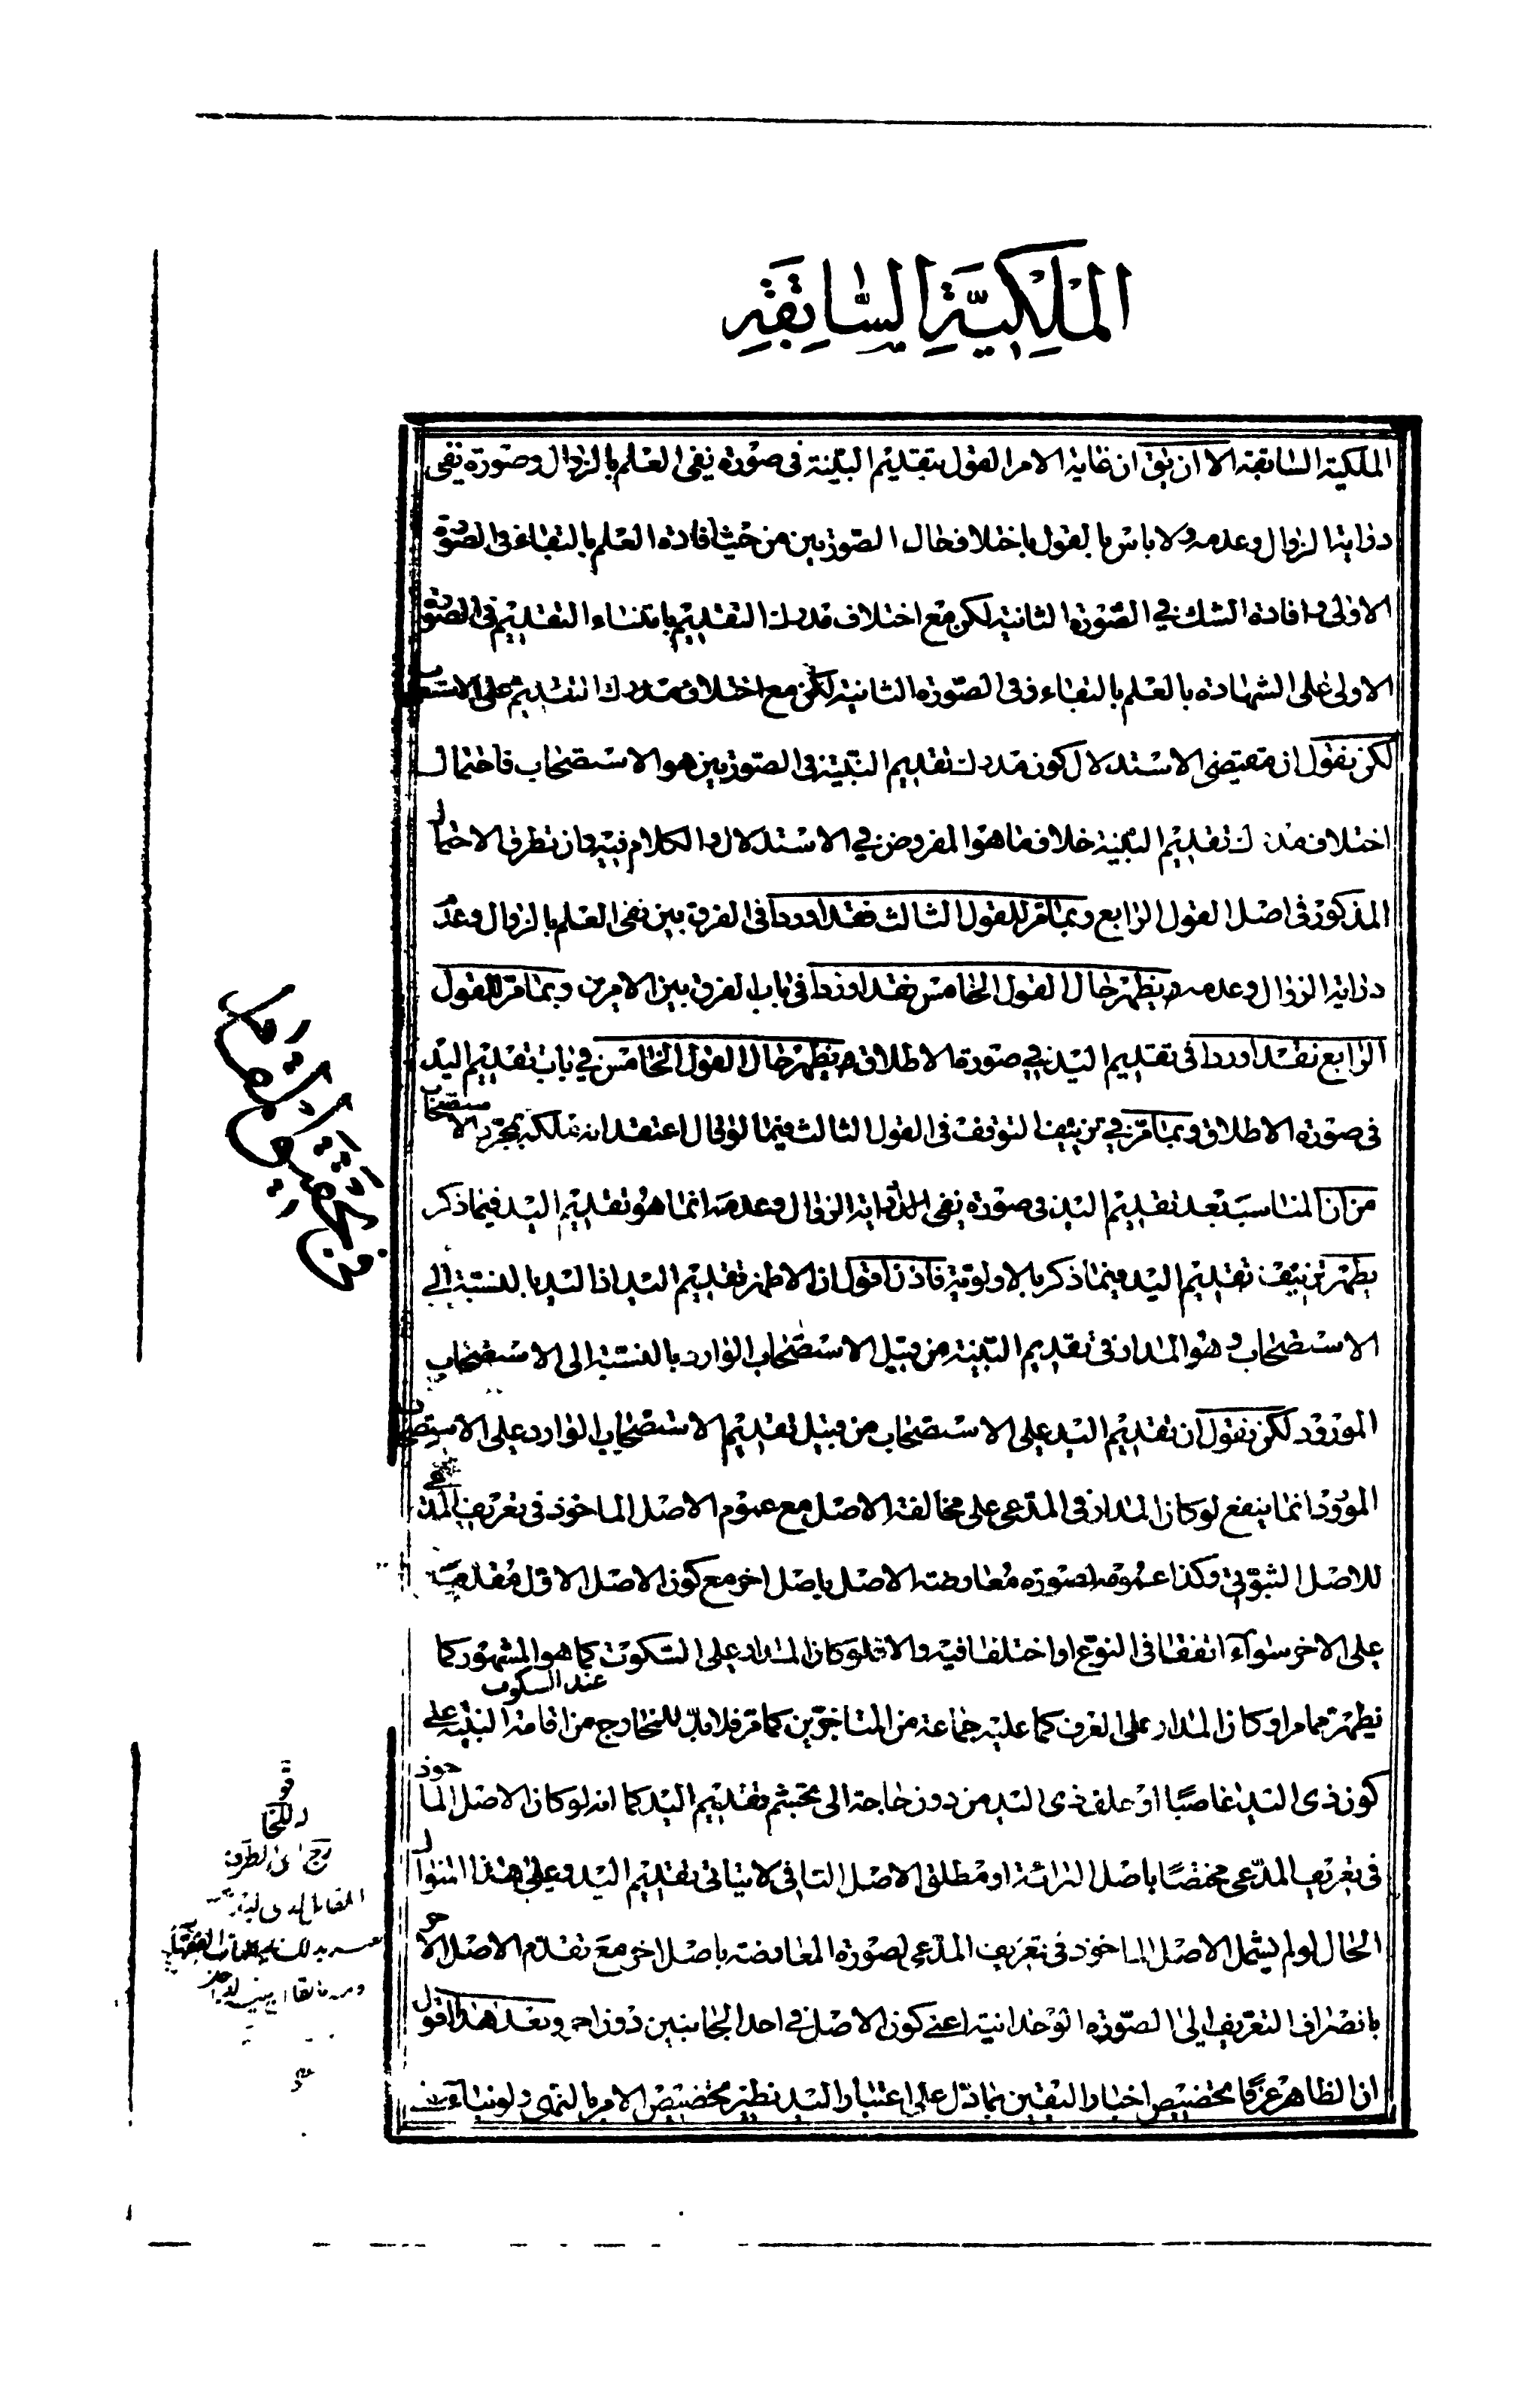 الملكية السابقة
الملكية السابقة الا ان يق ان غاية الامر القول بتقديم البينة فى صورة نفى العلم بالزوال وصورة نفى
دراية الزوال وعدمه ولا باس بالقول باختلاف حال الصورتين من حيث افادة العلم بالبقاء فى الصورة
الاولى وافادة الشك في الصورة الثانية لكن مع اختلاف مدرك التقديم بابتناء التقديم فى الصورة
الاولى على الشهادة بالعلم بالبقاء وفى الصورة الثانية لكن مع اختلاف مدرك التقديم على الاستصحاب
لكن نقول ان مقتضى الاستدلال كون مدرك تقديم البينة فى الصورتين هو الاستصحاب فاحتمال
اختلاف مدرك تقديم البينة خلاف ما هو المفروض في الاستدلال والكلام فيه وان تطرق الاحتمال
المذكور فى اصل القول الرابع وبما مر للقول الثالث فقد اورد فى الفرق بين نفى العلم بالزوال وعدم
دراية الزوال وعدمه ويظهر حال القول الخامس فقد اورد فى باب الفرق بين الامرين وبما مر للقول
الرابع فقد اورد فى تقديم اليد في صورة الاطلاق ويظهر حال القول الخامس في باب تقديم اليد
فى صورة الاطلاق وبما مر في تزييف التوقف فى القول الثالث فيما لو قال اعتقد انه ملكه بمجرد الاستصحاب
من ان المناسب بعد تقديم اليد فى صورة نفى الدراية الزوال وعدمه انما هو تقديم اليد فيما ذكر
يظهر تزييف تقديم اليد فيما ذكر بالاولوية فاذن اقول ان الاظهر تقديم اليد اذا اليد بالنسبة الى
الاستصحاب وهو المدار فى تقديم البينة من قبيل الاستصحاب الوارد بالنسبة الى الاستصحاب
المورود لكن نقول ان تقديم اليد على الاستصحاب من قبيل تقديم الاستصحاب الوارد على الاستصحاب
المورود انما ينفع لو كان المدار فى المدعى على مخالفة الاصل مع عموم الاصل الماخوذ فى تعريف المدعى
للاصل الثبوتى وكذا عمومه لصورة معارضة الاصل باصل اخر مع كون الاصل الاول مقدما
على الاخر سواء اتفقا فى النوع او اختلفا فيه والا فلو كان المدار على السكوت كما هو المشهور كما
يظهر مما مر او كان المدار على العرف كما عليه جماعة من المتاخرين كما مر فلا بد للخارج عند السكوت من اقامة البينة على
كون ذى اليد غاصبا او حلف ذى اليد من دون حاجة الى تجشم تقديم اليد كما انه لو كان الاصل الماخوذ
فى تعريف المدعى مختصا باصل البرائة او مطلق الاصل النافى لا يتاتى تقديم اليد وعلى هذا المنوال
الحال لو لم يشمل الاصل الماخوذ فى تعريف المدعى لصورة المعارضة باصل اخر مع تقدم الاصل الاخر
بانصراف التعريف الى الصورة الوحدانية اعنى كون الاصل في احد الجانبين دون اخر وبعد هذا اقول
ان الظاهر عرفا تخصيص اخبار اليقين بما دل على اعتبار اليد نظير تخصيص الامر بالنهى ولو بناء
من تحقيق المقام
قو
للخا
رج اى الطرف
المقابل لذى اليد